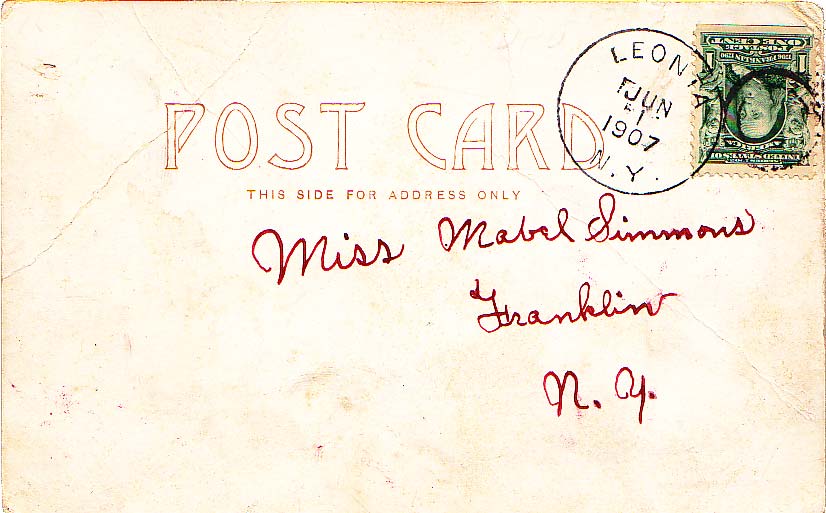 POST CARD
THIS SIDE FOR ADDRESS ONLY
LEONTA
JUN
1
1907
N.Y.
ONE CENT
1 1
Miss Mabel Simmons
Franklin
N. Y.